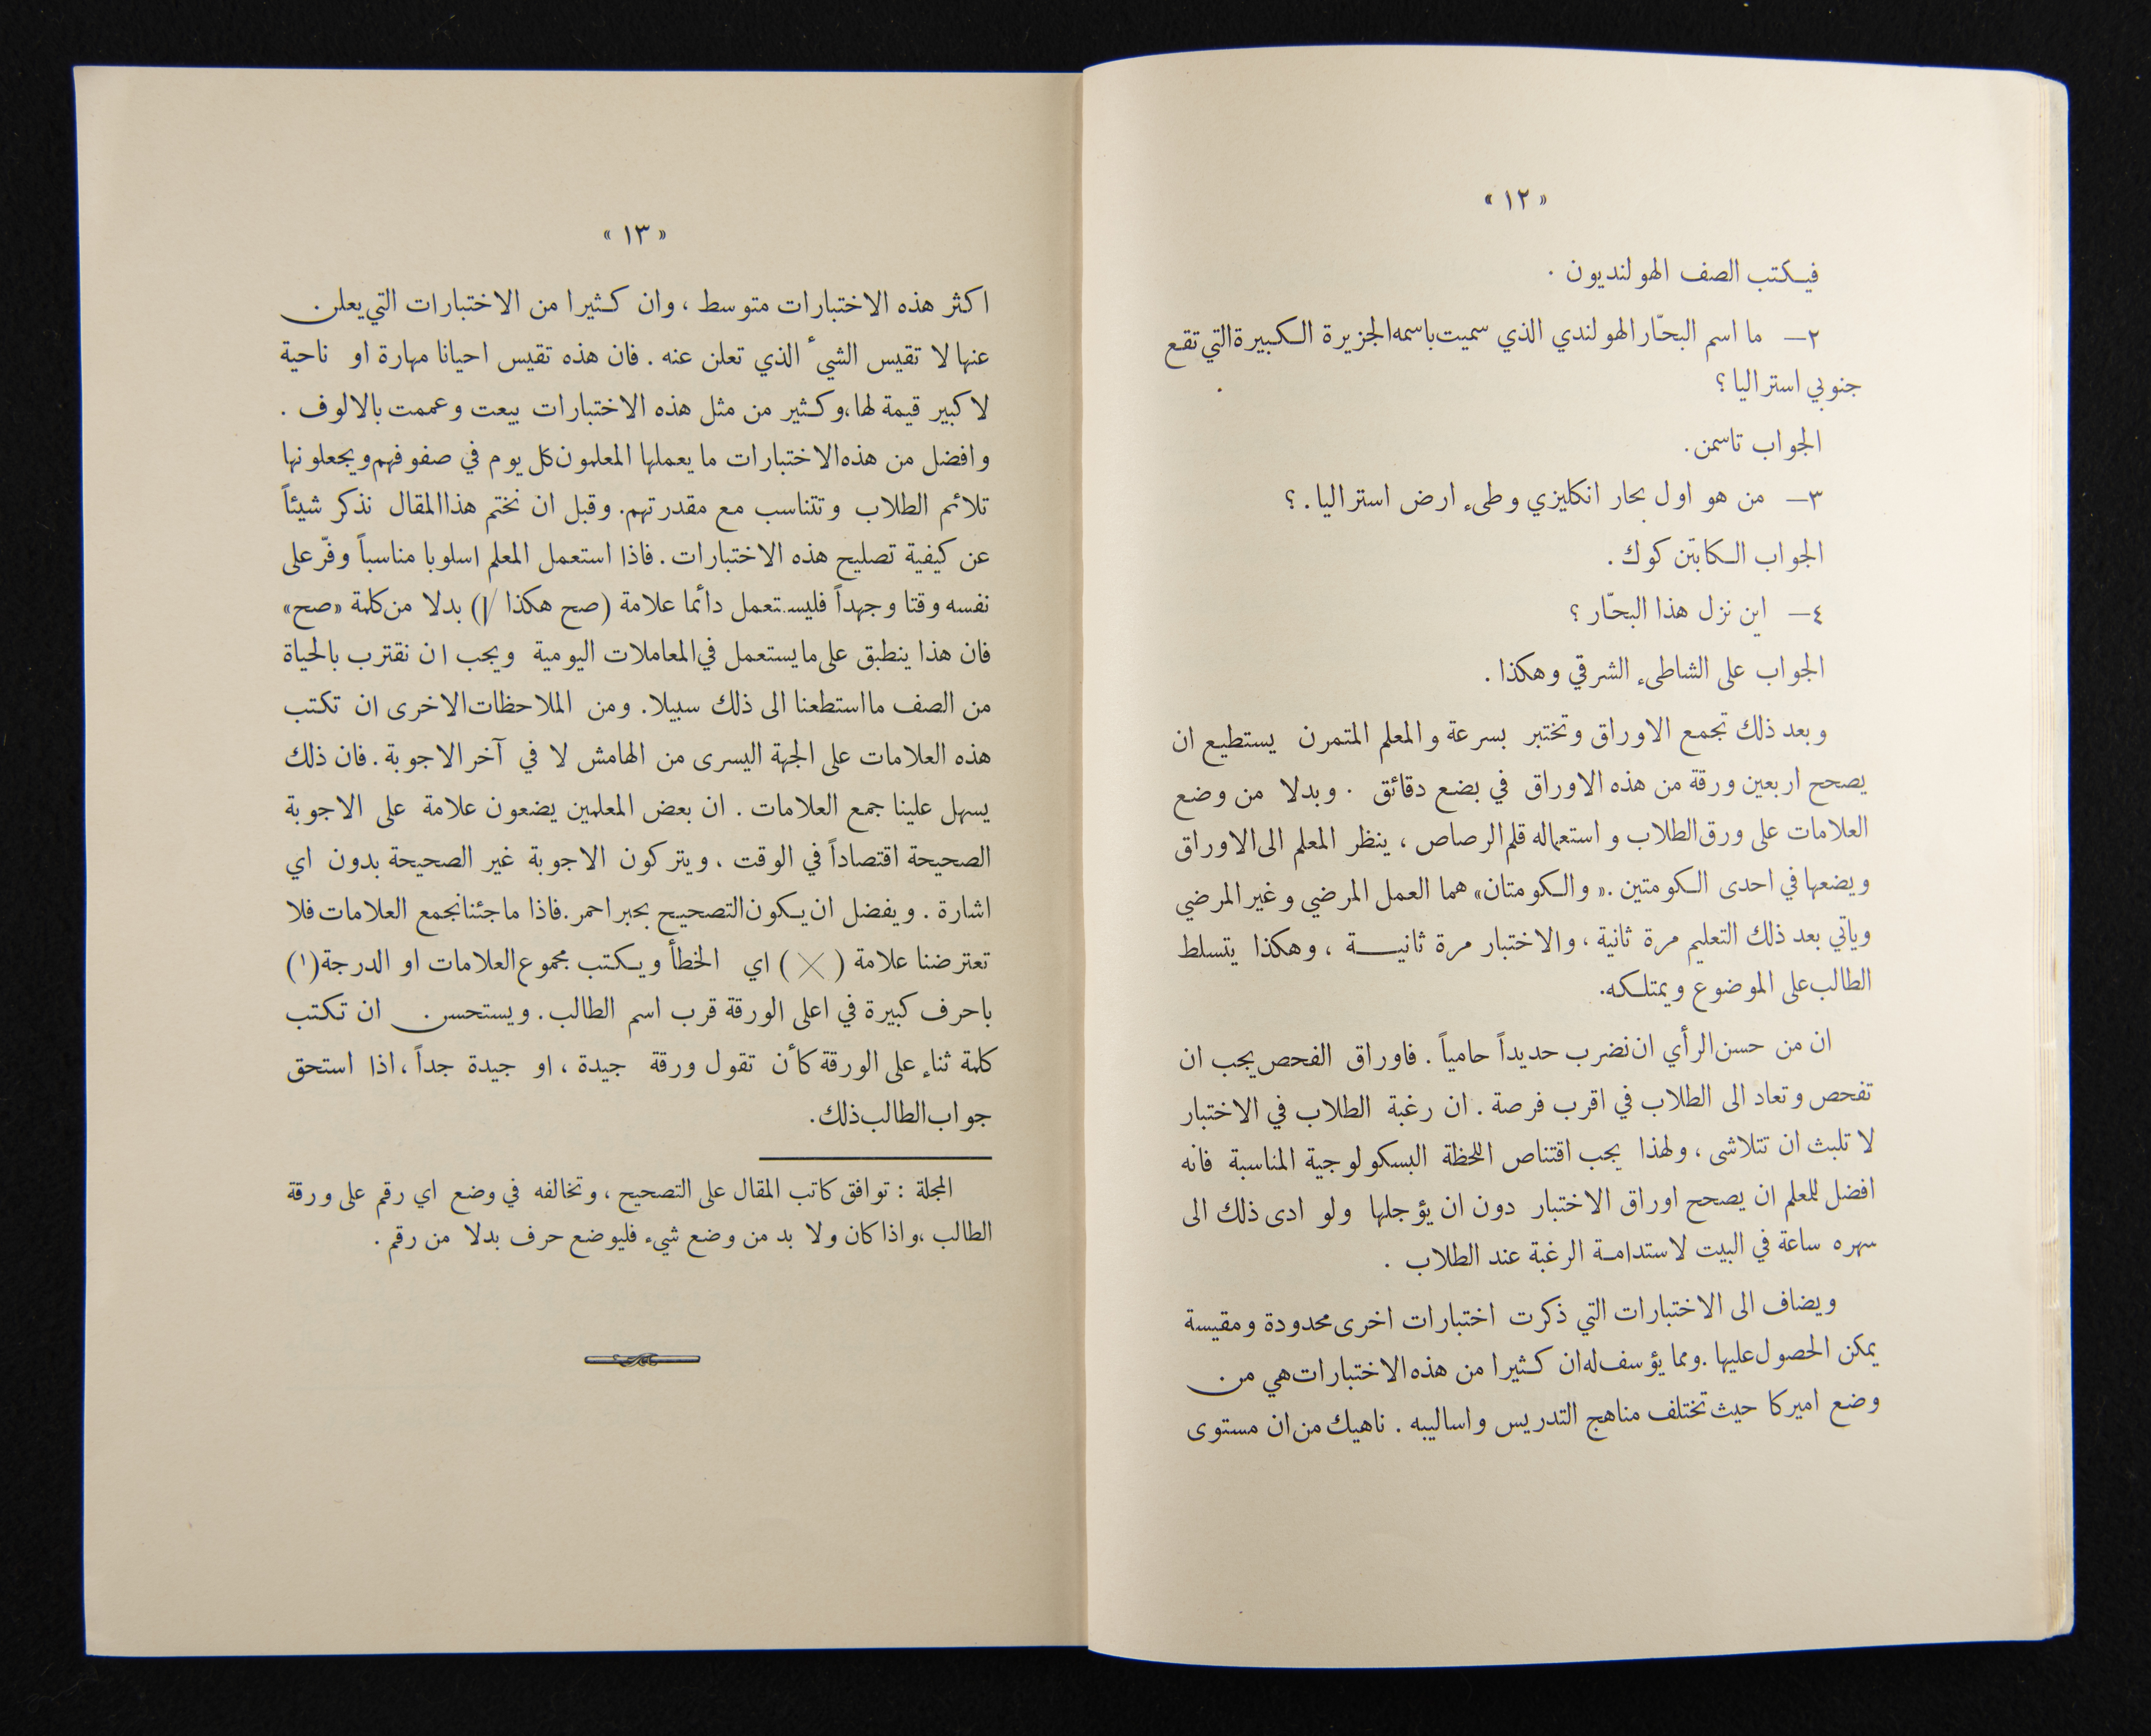 « ١٢ »
فيكتب الصف الهولنديون .
٢— ما اسم البحّار الهولندي الذي سميت باسمه الجزيرة الكبيرة التي تقع
جنوبي استراليا ؟
الجواب تاسمن.
٣— من هو اول بحار انكليزي وطىء ارض استراليا . ؟
الجواب الكابتن كوك .
٤— اين نزل هذا البحّار ؟
الجواب على الشاطىء الشرقي وهكذا .
وبعد ذلك تجمع الاوراق وتختبر بسرعة والمعلم المتمرن يستطيع ان
يصحح اربعين ورقة من هذه الاوراق في بضع دقائق . وبدلا من وضع
العلامات على ورق الطلاب واستعماله قلم الرصاص ، ينظر المعلم الى الاوراق
ويضعها في احدى الكومتين .« والكومتان» هما العمل المرضي وغير المرضي
وياتي بعد ذلك التعليم مرة ثانية ، والاختبار مرة ثانيــة ، وهكذا يتسلط
الطالب على الموضوع ويمتلكه.
ان من حسن الرأي ان نضرب حديداً حامياً . فاوراق الفحص يجب ان
تفحص وتعاد الى الطلاب في اقرب فرصة . ان رغبة الطلاب في الاختبار
لا تلبث ان تتلاشى ، ولهذا يجب اقتناص اللحظة البسكولوجية المناسبة فانه
افضل للمعلم ان يصحح اوراق الاختبار دون ان يؤجلها ولو ادى ذلك الى
سهره ساعة في البيت لاستدامة الرغبة عند الطلاب .
ويضاف الى الاختبارات التي ذكرت اختبارات اخرى محدودة ومقيسة
يمكن الحصول عليها .ومما يؤسف له ان كثيرا من هذه الاختبارات هي من
وضع اميركا حيث تختلف مناهج التدريس واساليبه . ناهيك من ان مستوى
« ١٣ »
اكثر هذه الاختبارات متوسط ، وان كثيرا من الاختبارات التي يعلن
عنها لا تقيس الشيءَ الذي تعلن عنه . فان هذه تقيس احيانا مهارة او ناحية
لا كبير قيمة لها ،وكثير من مثل هذه الاختبارات بيعت وعممت بالالوف .
وافضل من هذه الاختبارات ما يعملها المعلمون كل يوم في صفوفهم ويجعلونها
تلائم الطلاب وتتناسب مع مقدرتهم. وقبل ان نختم هذا المقال نذكر شيئاً
عن كيفية تصليح هذه الاختبارات . فاذا استعمل المعلم اسلوبا مناسباً وفّر على
نفسه وقتا وجهداً فليستعمل دائما علامة (صح هكذا √) بدلا من كلمة «صح»
فان هذا ينطبق على ما يستعمل في المعاملات اليومية ويجب ان نقترب بالحياة
من الصف ما استطعنا الى ذلك سبيلا. ومن الملاحظات الاخرى ان تكتب
هذه العلامات على الجهة اليسرى من الهامش لا في آخر الاجوبة . فان ذلك
يسهل علينا جمع العلامات . ان بعض المعلمين يضعون علامة على الاجوبة
الصحيحة اقتصاداً في الوقت . ويتركون الاجوبة غير الصحيحة بدون اي
اشارة . ويفضل ان يكون التصحيح بحبر احمر .فاذا ما جئنا نجمع العلامات فلا
تعترضنا علامة ( × ) اي الخطأ ويكتب مجموع العلامات او الدرجة(١)
باحرف كبيرة في اعلى الورقة قرب اسم الطالب . ويستحسن ان تكتب
كلمة ثناء على الورقة كأن تقول ورقة جيدة ، او جيدة جداً ، اذا استحق
جواب الطالب ذلك.
المجلة : توافق كاتب المقال على التصحيح ، وتخالفه في وضع اي رقم على ورقة
الطالب ،واذا كان ولا بد من وضع شيء فليوضع حرف بدلا من رقم .